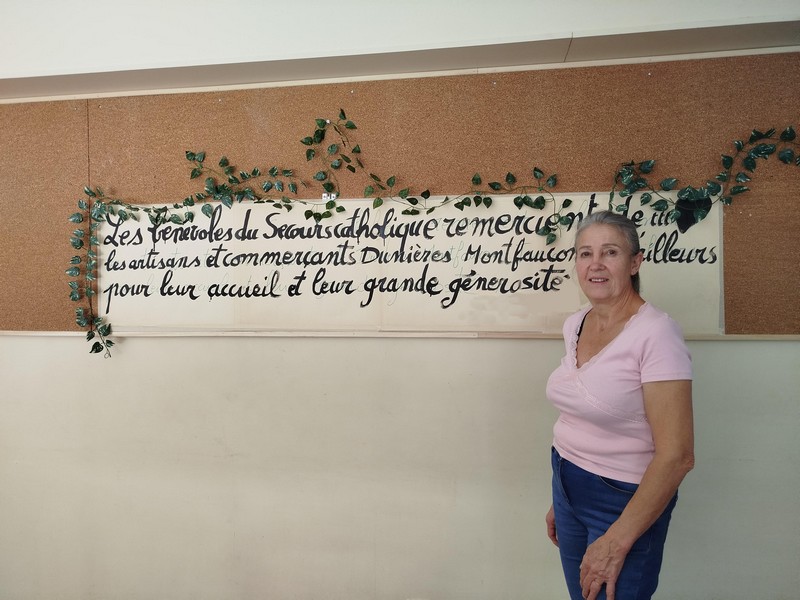 Les bénévoles du Secours catholique remercient de
les artisans et commerçants Dunières Montfaucon ailleurs
pour leur accueil et leur grande générosité